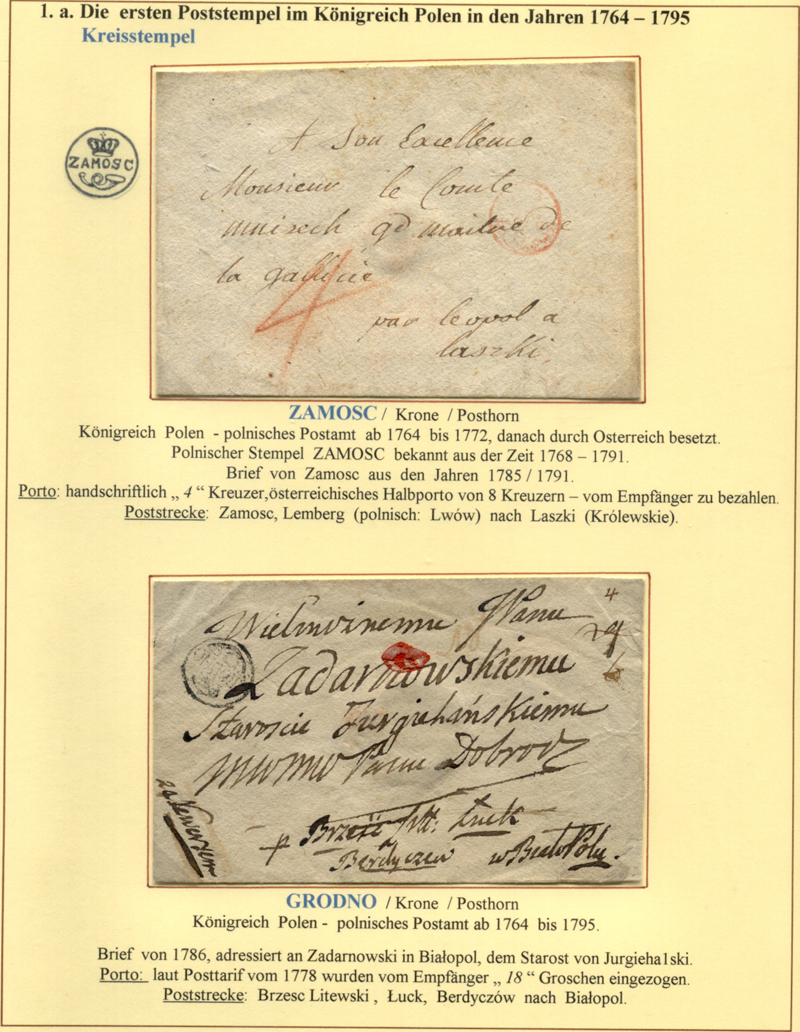 1. a. Die ersten Poststempel im Königreich Polen in den Jahren 1764 – 1795
Kreisstempel
ZAMOSC
A Son Excellence
Monsieur le Comte
mnisech gd maitre de
la gallicie
4
par leopol a
laszki.
ZAMOSC / Krone / Posthorn
Königreich Polen - polnisches Postamt ab 1764 bis 1772, danach durch Osterreich besetzt.
Polnischer Stempel ZAMOSC bekannt aus der Zeit 1768 – 1791.
Brief von Zamosc aus den Jahren 1785 / 1791.
Porto: handschriftlich „ 4 “ Kreuzer,österreichisches Halbporto von 8 Kreuzern – vom Empfänger zu bezahlen.
Poststrecke: Zamosc, Lemberg (polnisch: Lwów) nach Laszki (Królewskie).
4
Wielmożnemu JPanu
Zadarnowskiemu
Staroscie Jurgiehańskiemu
Panu Dobrodz
za Rewersem
p Brześć Łuck
Berdyczew w BiałoPolu.
GRODNO / Krone / Posthorn
Königreich Polen - polnisches Postamt ab 1764 bis 1795.
Brief von 1786, adressiert an Zadarnowski in Białopol, dem Starost von Jurgiehalski.
Porto: laut Posttarif vom 1778 wurden vom Empfänger „ 18 “ Groschen eingezogen.
Poststrecke: Brzesc Litewski , Łuck, Berdyczów nach Białopol.